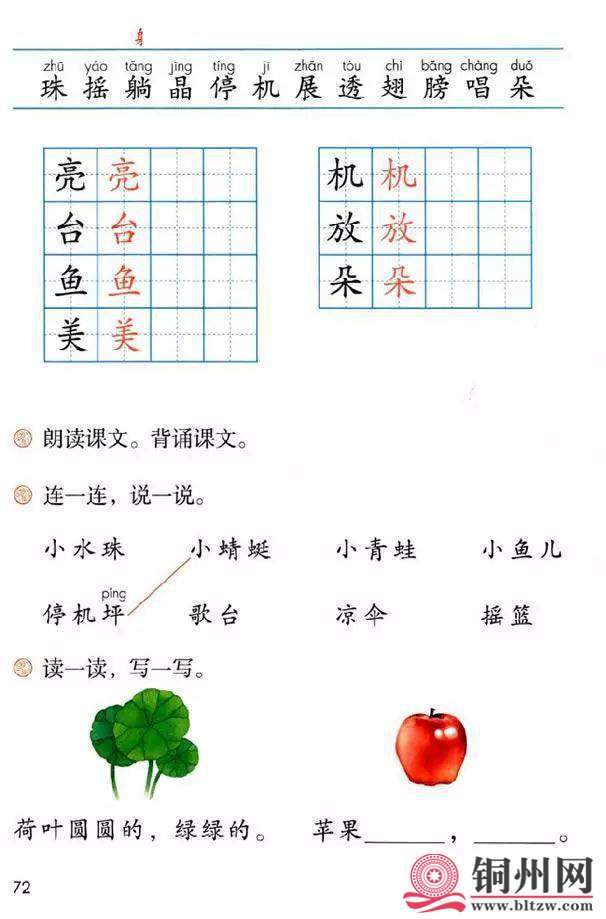 ⾝
zhū yáo tǎng jīng tíng jī zhǎn tòu chì bǎng chàng duǒ
珠 摇 躺 晶 停 机 展 透 翅 膀 唱 朵
亮 亮 机 机
台 台 放 放
鱼 鱼 朵 朵
美 美
朗读课文。背诵课文。
连一连，说一说。
小水珠 小蜻蜓 小青蛙 小鱼儿
píng
停机坪 歌台 凉伞 摇篮
读一读，写一写。
荷叶圆圆的，绿绿的。 苹果______，______。
72
铜州网
www.bltzw.com